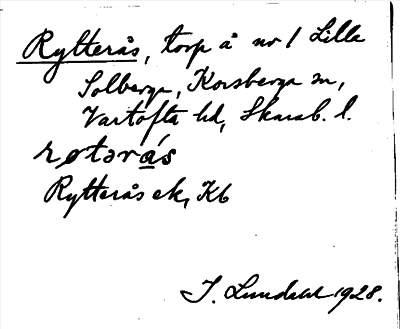 Rytterås, torp å nr 1 Lilla
Solberga, Korsberga sn,
Vartofta hd, Skarab. l.
røtərás
Rytterås ek, Kb
J. Lundahl 1928.